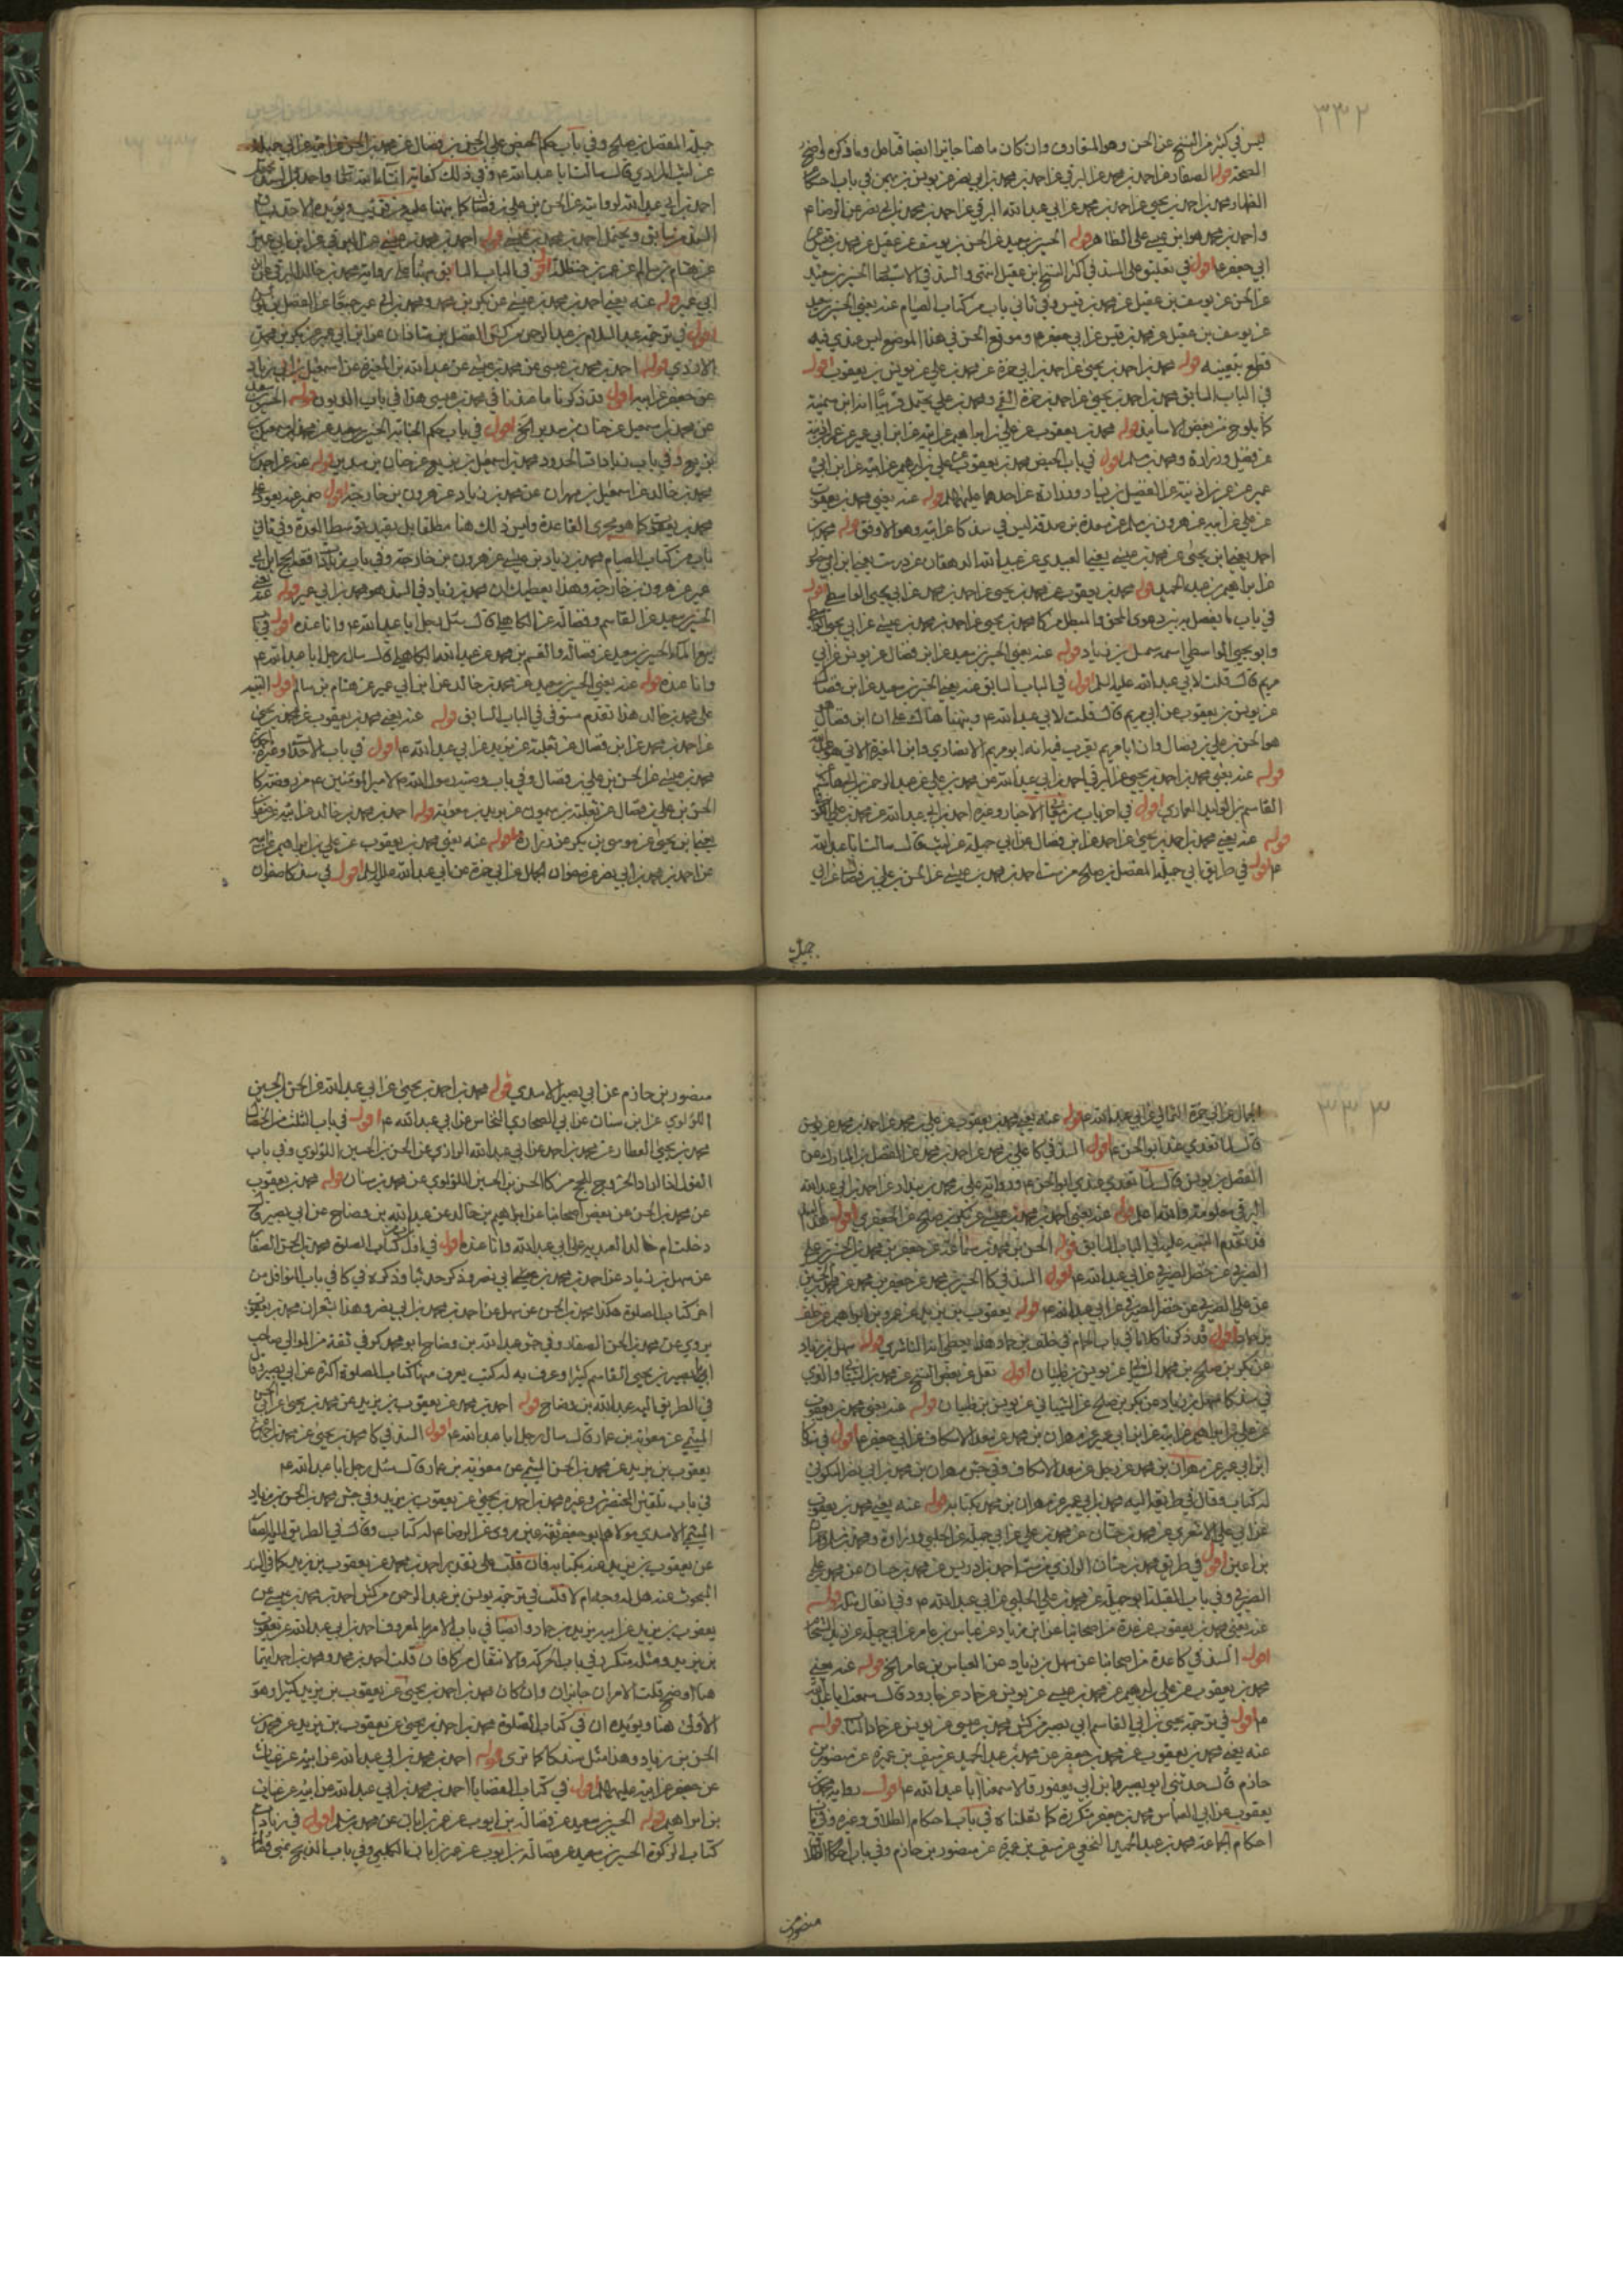 ٣٣٢
ليس في كثير من النسخ عن الحسن وهو المتعارف وان كان ما هنا جايزا ايضا فتامل وما ذكره واضح
الصحة قوله الصفار عن احمد بن محمد عن البرقي عن احمد بن محمد بن ابي نصر عن يونس بن في باب احكام
الظهار محمد بن احمد بن يحيى عن احمد بن محمد عن ابي عبد الله البرقي عن احمد بن محمد بن ابي نصر عن الرضا م
واحمد بن محمد هو ابن عيسى على الظاهر قوله الحسين بن سعيد عن الحسن بن يوسف عن عقيل عن محمد بن قيس عن
ابي جعفر ع اقول في تعليق على السند في اكثر النسخ ابن عقيل انتهى والسند في الحسين بن سعيد
عن الحسن عن يوسف بن عقيل عن محمد بن قيس وفي ثاني باب من كتاب الصيام عنه يعني الحسين بن سعيد
عن يوسف بن عقيل عن محمد بن قيس عن ابي جعفر ع وموقع الحسن في هذا الموضع ليس عندي فيه
قطع بتعينه قوله محمد بن احمد بن يحيى عن احمد بن ابي حمزة عن محمد بن علي عن يونس بن يعقوب اقول
في الباب السابق محمد بن احمد بن يحيى عن احمد بن حمزة القمي ومحمد بن علي يحتمل قريبا انه ابن سمينة
كما يلوح من بعض الاسانيد قوله محمد بن يعقوب عن علي بن ابراهيم عن ابيه عن ابن ابي عمير عن عمر بن اذينة
عن فضيل وزرارة ومحمد بن مسلم اقول في باب الحيض محمد بن يعقوب عن علي بن ابراهيم عن ابيه عن ابن ابي
عمير عن عمر بن اذينة عن الفضيل بن يسار وزرارة عن احدهما عليهما السلم قوله عنه يعني محمد بن يعقوب
عن علي عن ابيه عن هرون بن مسلم عن مسعدة بن صدقة ليس في سند كا عن ابيه وهو الاوفق قوله محمد بن
احمد يعني ابن يحيى عن محمد بن عيسى يعني العبيدي عن عبيد الله الدهقان عن درست يعني ابن ابي منصور
عن ابراهيم بن عبد الحميد قوله محمد بن يعقوب عن محمد بن يحيى عن احمد بن محمد عن ابي يحيى الواسطي اقول
في باب ما يفصل به بين دعوى المحق والمبطل من كا محمد بن يحيى عن احمد بن محمد بن عيسى عن ابي يحيى الواسطي
وابو يحيى الواسطي اسمه سهيل بن زياد قوله عنه يعني الحسين بن سعيد عن ابن فضال عن يونس عن ابي
مريم قال قلت لابي عبد الله عليه السلم اقول في الباب السابق عنه يعني الحسين بن سعيد عن ابن فضال
عن يونس بن يعقوب عن ابي مريم قال قلت لابي عبد الله م ونبهنا هناك على ان ابن فضال
هو الحسن بن علي بن فضال وان ابا مريم يقرب فيه انه ابو مريم الانصاري وابن المغيرة الاتي هو عبد الله
قوله عنه يعني محمد بن احمد بن يحيى عن البرقي احمد بن ابي عبد الله عن محمد بن علي عن عبد الرحمن بن ابي هاشم
القاسم بن الوليد العماري اقول في اخر باب من وغيره احمد بن ابي عبد الله عن محمد بن علي الكوفي
قوله عنه يعني محمد بن احمد بن يحيى عن احمد عن ابن فضال عن ابي جميلة عن ليث قال سالت ابا عبد الله
م اقول في طريق ابي جميلة المفضل بن صالح من ست احمد بن محمد بن عيسى عن الحسن بن علي بن فضال عن ابي
جميلة
جميلة المفضل بن صالح وفي باب حكم الحيض علي بن الحسن بن فضال عن محمد بن الحسن عن ابيه عن ابي جميلة
عن ليث المرادي قال سالت ابا عبد الله م وفي ذلك كفاية ان شاء الله تعالى
احمد بن ابي عبد الله لروايته عن الحسن بن علي بن فضال كما نبهنا عليه عن قريب ويؤيده
السند من سابق ويحتمل احمد بن محمد بن عيسى قوله احمد بن محمد بن عيسى عن البرقي عن ابن ابي عمير
عن هشام بن سالم عن عمر بن حنظلة اقول في الباب السابق نبهنا على رواية محمد بن خالد البرقي عن ابن
ابي عمير قوله عنه يعني احمد بن محمد بن عيسى عن بكر بن محمد ومحمد بن ابي عمير جميعا عن الفضل بن
اقول في ترجمة عبد السلام بن عبد الرحمن من كش الفضل بن شاذان عن ابن ابي عمير عن بكر بن محمد
الازدي قوله احمد بن محمد بن عيسى عن محمد بن عيسى عن عبد الله بن المغيرة عن اسمعيل بن ابي زياد
عن جعفر عن ابيه اقول قد ذكرنا ما عندنا في محمد بن عيسى هذا في باب الديون قوله الحسين بن سعيد
عن محمد بن اسمعيل عن حنان بن سدير الخ اقول في باب حكم الجنابة الحسين بن سعيد عن محمد بن اسمعيل
بن بزيع وفي باب زيادات الحدود محمد بن اسمعيل بن بزيع عن حنان بن سدير قوله عنه عن احمد
محمد بن خالد عن اسمعيل بن مهران عن محمد بن زياد عن هرون بن خارجة اقول ضمير عنه يعود على
محمد بن يعقوب كما هو مجرى القاعدة وليس ذلك هنا مطلقا بل يقيد بتوسط العدة وفي ثاني
باب من كتاب الصيام محمد بن زياد بن عيسى عن هرون بن خارجة وفي باب زيادات فقه الحج ابن ابي
عمير عن هرون بن خارجة وهذا يعطيك ان محمد بن زياد في السند هو محمد بن ابي عمير قوله عنه يعني
الحسين بن سعيد عن القاسم وفضالة عن الكاهلي قال سئل رجل ابا عبد الله م وانا عنده اقول في
بيع الماء الحسين بن سعيد عن فضالة والقسم بن محمد عن عبد الله الكاهلي قال سال رجل ابا عبد الله م
وانا عنده قوله عنه يعني الحسين بن سعيد عن محمد بن خالد عن ابن ابي عمير عن هشام بن سالم اقول التنبيه
على محمد بن خالد هذا تقدم مستوفى في الباب السابق قوله عنه يعني محمد بن يعقوب عن محمد بن يحيى
عن احمد بن محمد عن ابن فضال عن ثعلبة عن بريد عن ابي عبد الله م اقول في باب الاحداث وغيره احمد بن
محمد بن عيسى عن الحسن بن علي بن فضال وفي باب وصية رسول الله م لامير المؤمنين م من روضة كا
الحسن بن علي بن فضال عن ثعلبة بن ميمون عن بريد بن معوية قوله احمد بن محمد بن خالد عن ابيه عن صفوان
يعني ابن يحيى عن موسى بن بكر عن زرارة قوله عنه يعني محمد بن يعقوب عن علي بن ابراهيم عن ابيه
عن احمد بن محمد بن ابي نصر عن صفوان الجمال عن ابي حمزة عن ابي عبد الله عليه السلم اقول في سند كا صفوان
٣٣٣
الجمال عن ابي حمزة الثمالي عن ابي عبد الله م قوله عنه يعني محمد بن يعقوب عن علي بن محمد عن احمد بن محمد عن يونس
قال لما تغدى عندي ابو الحسن ع اقول السند في كا علي بن محمد عن احمد بن محمد عن الفضل بن المبارك عن
الفضل بن يونس قال لما تغدى عندي ابو الحسن ع ورواية علي بن محمد بن بندار عن احمد بن ابي عبد الله
البرقي معلومة والله اعلم قوله عنه يعني احمد بن محمد بن عيسى عن بكر بن صالح عن الجعفري اقول هذا السند
قد تقدم التنبيه عليه في الباب السابق قوله الحسن بن محمد بن سماعة عن جعفر بن محمد بن الحسين عن علي
الصيرفي عن خضر الصيرفي عن ابي عبد الله م اقول السند في كا الحسين بن محمد عن جعفر بن محمد عن محمد بن الحسين
عن علي الصيرفي عن خضر الصيرفي عن ابي عبد الله م قوله يعقوب بن يزيد عن عمرو بن ابراهيم عن خلف
بن حماد اقول قد ذكرنا كلاما في باب الحمام في خلف بن حماد وهذا يعطي انه الناشري قوله سهل بن زياد
عن بكر بن صالح بن محمد الشيباني عن يونس بن ظبيان اقول نقل عن بعض النسخ عن محمد بن الشيباني والذي
في سند كا سهل بن زياد عن بكر بن صالح عن الشيباني عن يونس بن ظبيان قوله عنه يعني محمد بن يعقوب
عن علي بن ابراهيم عن ابيه عن ابن ابي عمير عن مهران بن محمد عن سعد الاسكاف عن ابي جعفر ع اقول في كا
ابن ابي عمير عن مهران بن محمد عن رجل عن سعد الاسكاف وفي جش مهران بن محمد بن ابي نصر السكوني
له كتاب وقال في طريقه اليه محمد بن ابي عمير عن مهران بن محمد بكتابه قوله عنه يعني محمد بن يعقوب
عن ابي علي الاشعري عن محمد بن حسان عن محمد بن علي عن ابي جميلة عن الحلبي وزرارة ومحمد بن مسلم
بن اعين اقول في طريق محمد بن حسان الرازي من ست احمد بن ادريس عن محمد بن حسان عن محمد بن علي
الصيرفي وفي باب القبلة ابو جميلة عن محمد بن علي الحلبي عن ابي عبد الله م وفي انفال مثله قوله
عنه يعني محمد بن يعقوب عن عدة من اصحابنا عن ابن زياد عن عباس بن عامر عن ابي جميلة عن زيد الشحام
اقول السند في كا عدة من اصحابنا عن سهل بن زياد عن العباس بن عامر الخ قوله عنه يعني
محمد بن يعقوب عن علي بن ابراهيم عن محمد بن عيسى عن يونس عن حماد عن جارود قال سمعت ابا عبد الله
م اقول في ترجمة يحيى بن ابي القاسم ابي بصير من كش محمد بن عيسى عن يونس عن حماد الناب قوله
عنه يعني محمد بن يعقوب عن محمد بن جعفر عن محمد بن عبد الحميد عن سيف بن عميرة عن منصور بن
حازم قال حدثني ابو بصير وابن ابي يعفور قالا سمعنا ابا عبد الله م اقول رواية محمد بن
يعقوب عن ابي العباس محمد بن جعفر متكررة كما نقلناه في باب احكام الطلاق وغيره وفي باب
احكام الجماعة محمد بن عبد الحميد النخعي عن سيف بن عميرة عن منصور بن حازم وفي باب احكام الطلاق
منصور بن
منصور بن حازم عن ابي بصير الاسدي قوله محمد بن احمد بن يحيى عن ابي عبد الله عن الحسن بن الحسين
اللؤلؤي عن ابن سنان عن ابي الصحاري النخاس عن ابي عبد الله م اقول في باب الثلث من الخصال
محمد بن يحيى العطار عن محمد بن احمد عن ابي عبد الله الرازي عن الحسن بن الحسين اللؤلؤي وفي باب
القول اذا اراد الخروج للحج من كا الحسن بن الحسين اللؤلؤي عن محمد بن سنان قوله محمد بن يعقوب
عن محمد بن الحسن عن بعض اصحابنا عن ابراهيم بن خالد عن عبد الله بن وضاح عن ابي بصير قال
دخلت ام خالد العبدية على ابي عبد الله وانا عنده اقول في اول كتاب الصلوة محمد بن الحسن الصفار
عن سهل بن زياد عن احمد بن محمد بن ابي نصر وذكر حديثا وذكره في كا في باب النوافل من
اخر كتاب الصلوة هكذا محمد بن الحسن عن سهل عن احمد بن محمد بن ابي نصر وهذا يشعر ان محمد بن يعقوب
يروي عن محمد بن الحسن الصفار وفي جش عبد الله بن وضاح ابو محمد كوفي ثقة من الموالي صاحب
ابا بصير بن يحيى القاسم كثيرا وعرف به له كتب يعرف منها كتاب الصلوة اكثره عن ابي بصير وقال
في الطريق اليه عبد الله بن وضاح قوله احمد بن محمد عن يعقوب بن يزيد عن محمد بن يحيى عن ابي الحسن
الميثمي عن معوية بن عمار قال سال رجل ابا عبد الله م اقول السند في كا محمد بن يحيى عن محمد بن احمد عن
يعقوب بن يزيد عن محمد بن الحسن الميثمي عن معوية بن عمار قال سئل رجل ابا عبد الله م
في باب تلقين المحتضرين وغيره محمد بن احمد بن يحيى عن يعقوب بن يزيد وفي جش محمد بن الحسن بن زياد
الميثمي الاسدي مولاهم ابو جعفر ثقة عين روى عن الرضا م له كتاب وقال في الطريق اليه الصفار
عن يعقوب بن يزيد عنه بكتابه فان قلت على تقدير احمد بن محمد عن يعقوب بن يزيد كما في السند
المبحوث عنه هل له وجه ام لا قلت في ترجمة يونس بن عبد الرحمن من كش احمد بن محمد بن عيسى عن
يعقوب بن يزيد عن ابيه يزيد بن حماد وايضا في باب الامر بالمعروف احمد بن ابي عبد الله عن يعقوب
بن يزيد ومثله متكرر في باب الحركة والانتقال من كا فان قلت احمد بن محمد ومحمد بن احمد ايهما
هنا اوضح قلت الامران جايزان وان كان محمد بن احمد بن يحيى عن يعقوب بن يزيد كثيرا وهو
الاولى هنا ويؤيده ان في كتاب الصلوة محمد بن احمد بن يحيى عن يعقوب بن يزيد عن محمد بن
الحسن بن زياد وهذا مثل سند كا كما ترى قوله احمد بن محمد بن ابي عبد الله عن ابيه عن غياث
عن جعفر عن ابيه عليهما السلم اقول في كتاب القضايا احمد بن محمد بن ابي عبد الله عن ابيه عن غياث
بن ابراهيم قوله الحسين بن سعيد عن فضالة بن ايوب عن عمر بن ابان عن محمد بن مسلم اقول في زيادات
كتاب الزكوة الحسين بن سعيد عن فضالة بن ايوب عن عمر بن ابان الكلبي وفي باب الذبح عن فضالة